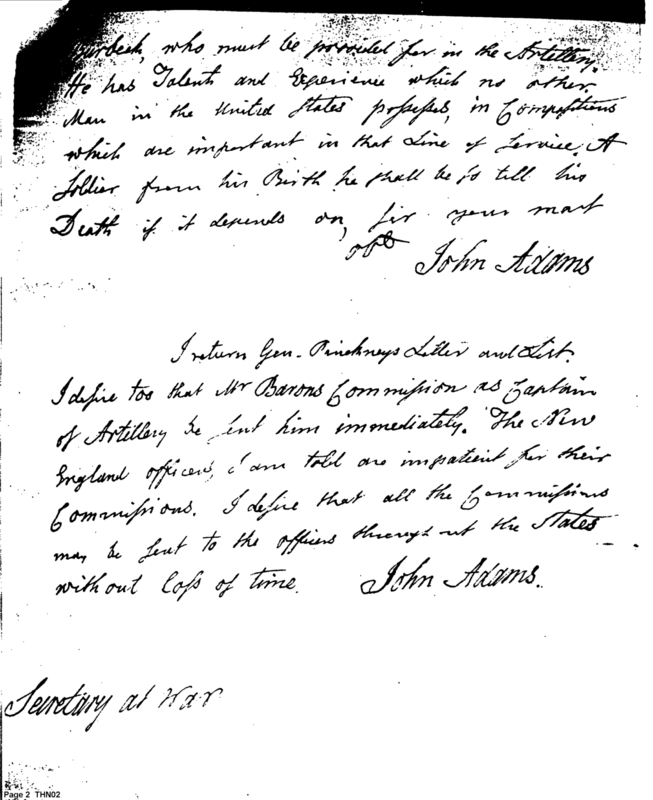 Burbeck, who must be provided for in the Artillery.
He has Talents and Experience which no other
Man in the United States possesses, in Compositions
which are important in that Line of Service. A
Soldier from his Birth he shall be so till his
Death if it depends on, sir your most
obt
John Adams
I return Gen. Pinckneys Letter and List.
I desire too that Mr Barons Commission as Captain
of Artillery be sent him immediately. The New
England officers, I am told are impatient for their
Commissions. I desire that all the Commissions
may be sent to the officers throughout the States
without loss of time. John Adams.
Secretary at War
Page 2 THN02